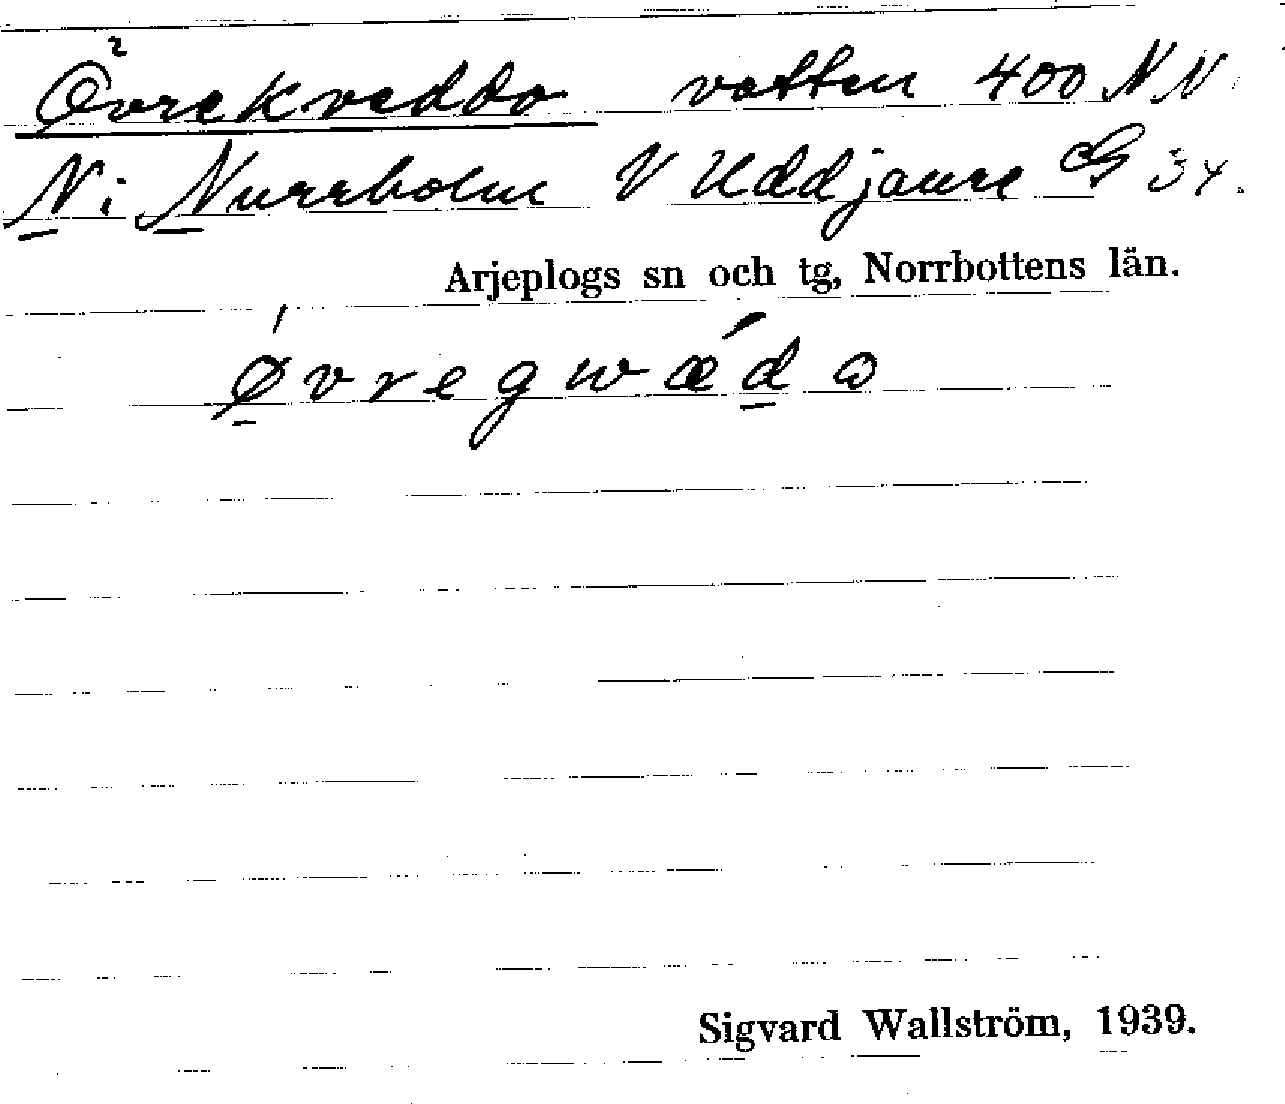 Övrekveddo vatten 400 N N
N i Nurrholm V Uddjaure G 34.
Arjeplogs sn och tg, Norrbottens län.
øvregwǽdo
Sigvard Wallström, 1939.